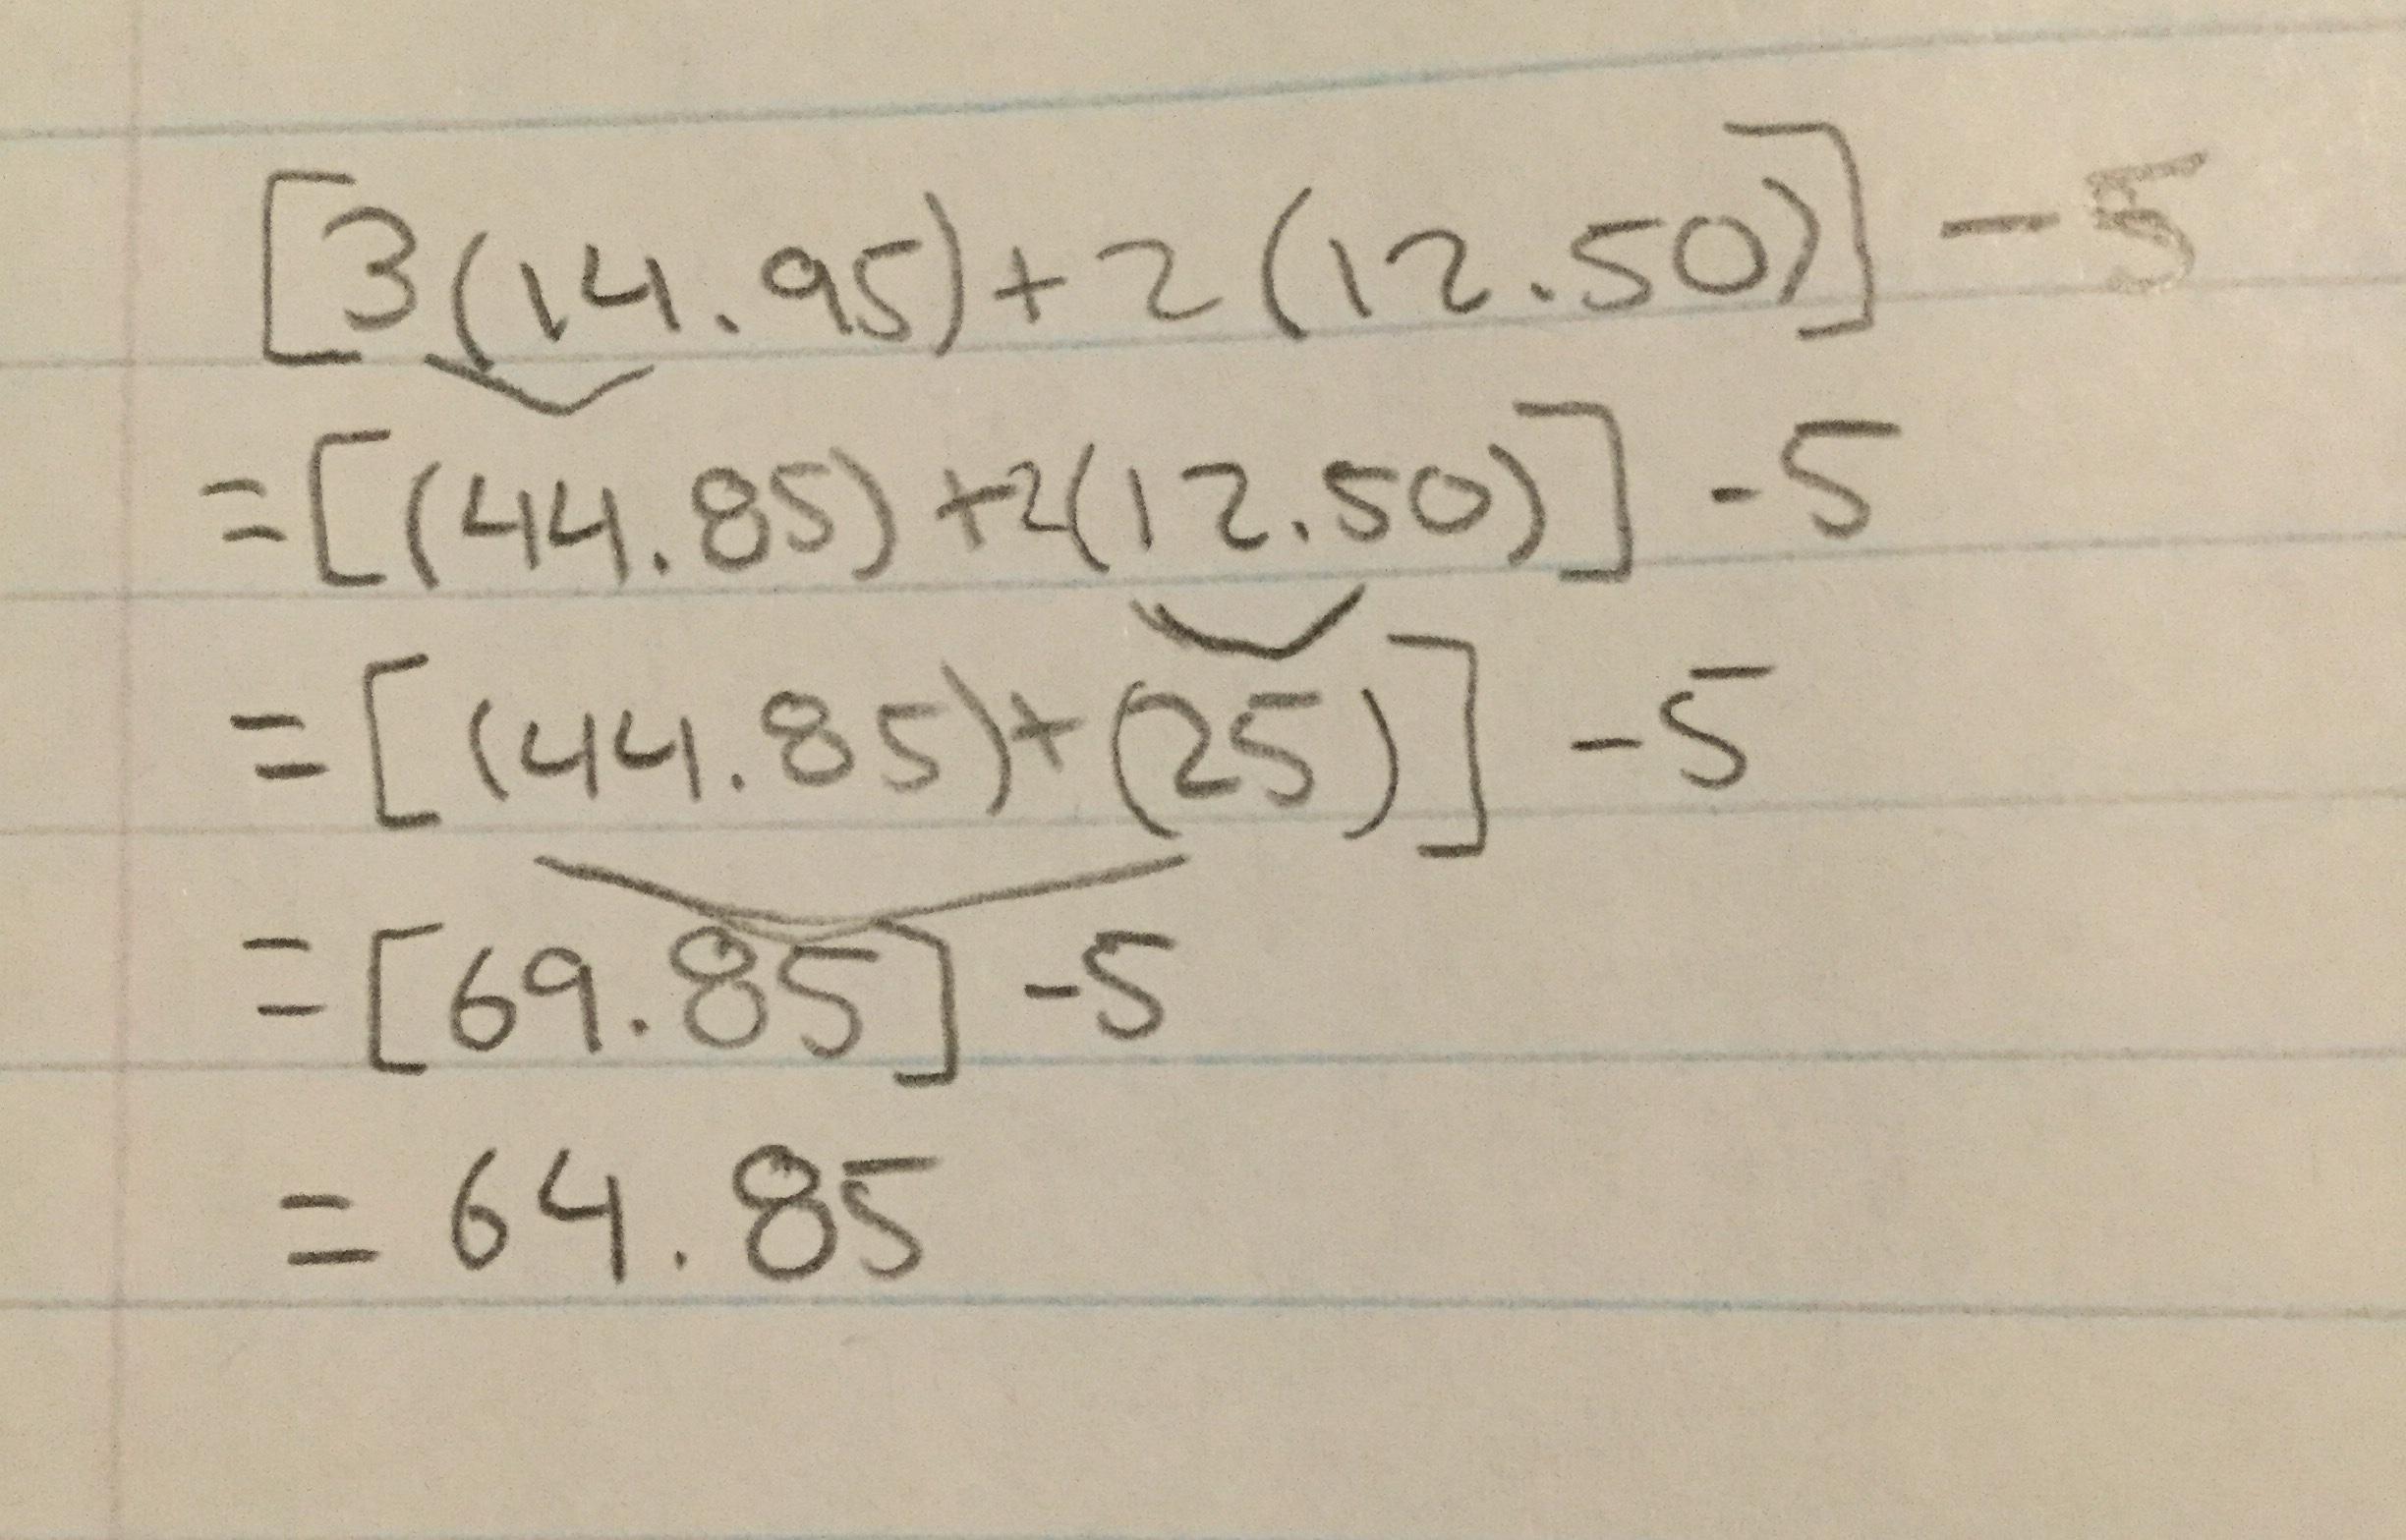 [3(14.95)+2(12.50)]-5
=[(44.85)+2(12.50)]-5
=[(44.85)+(25)]-5
=[69.85]-5
=64.85